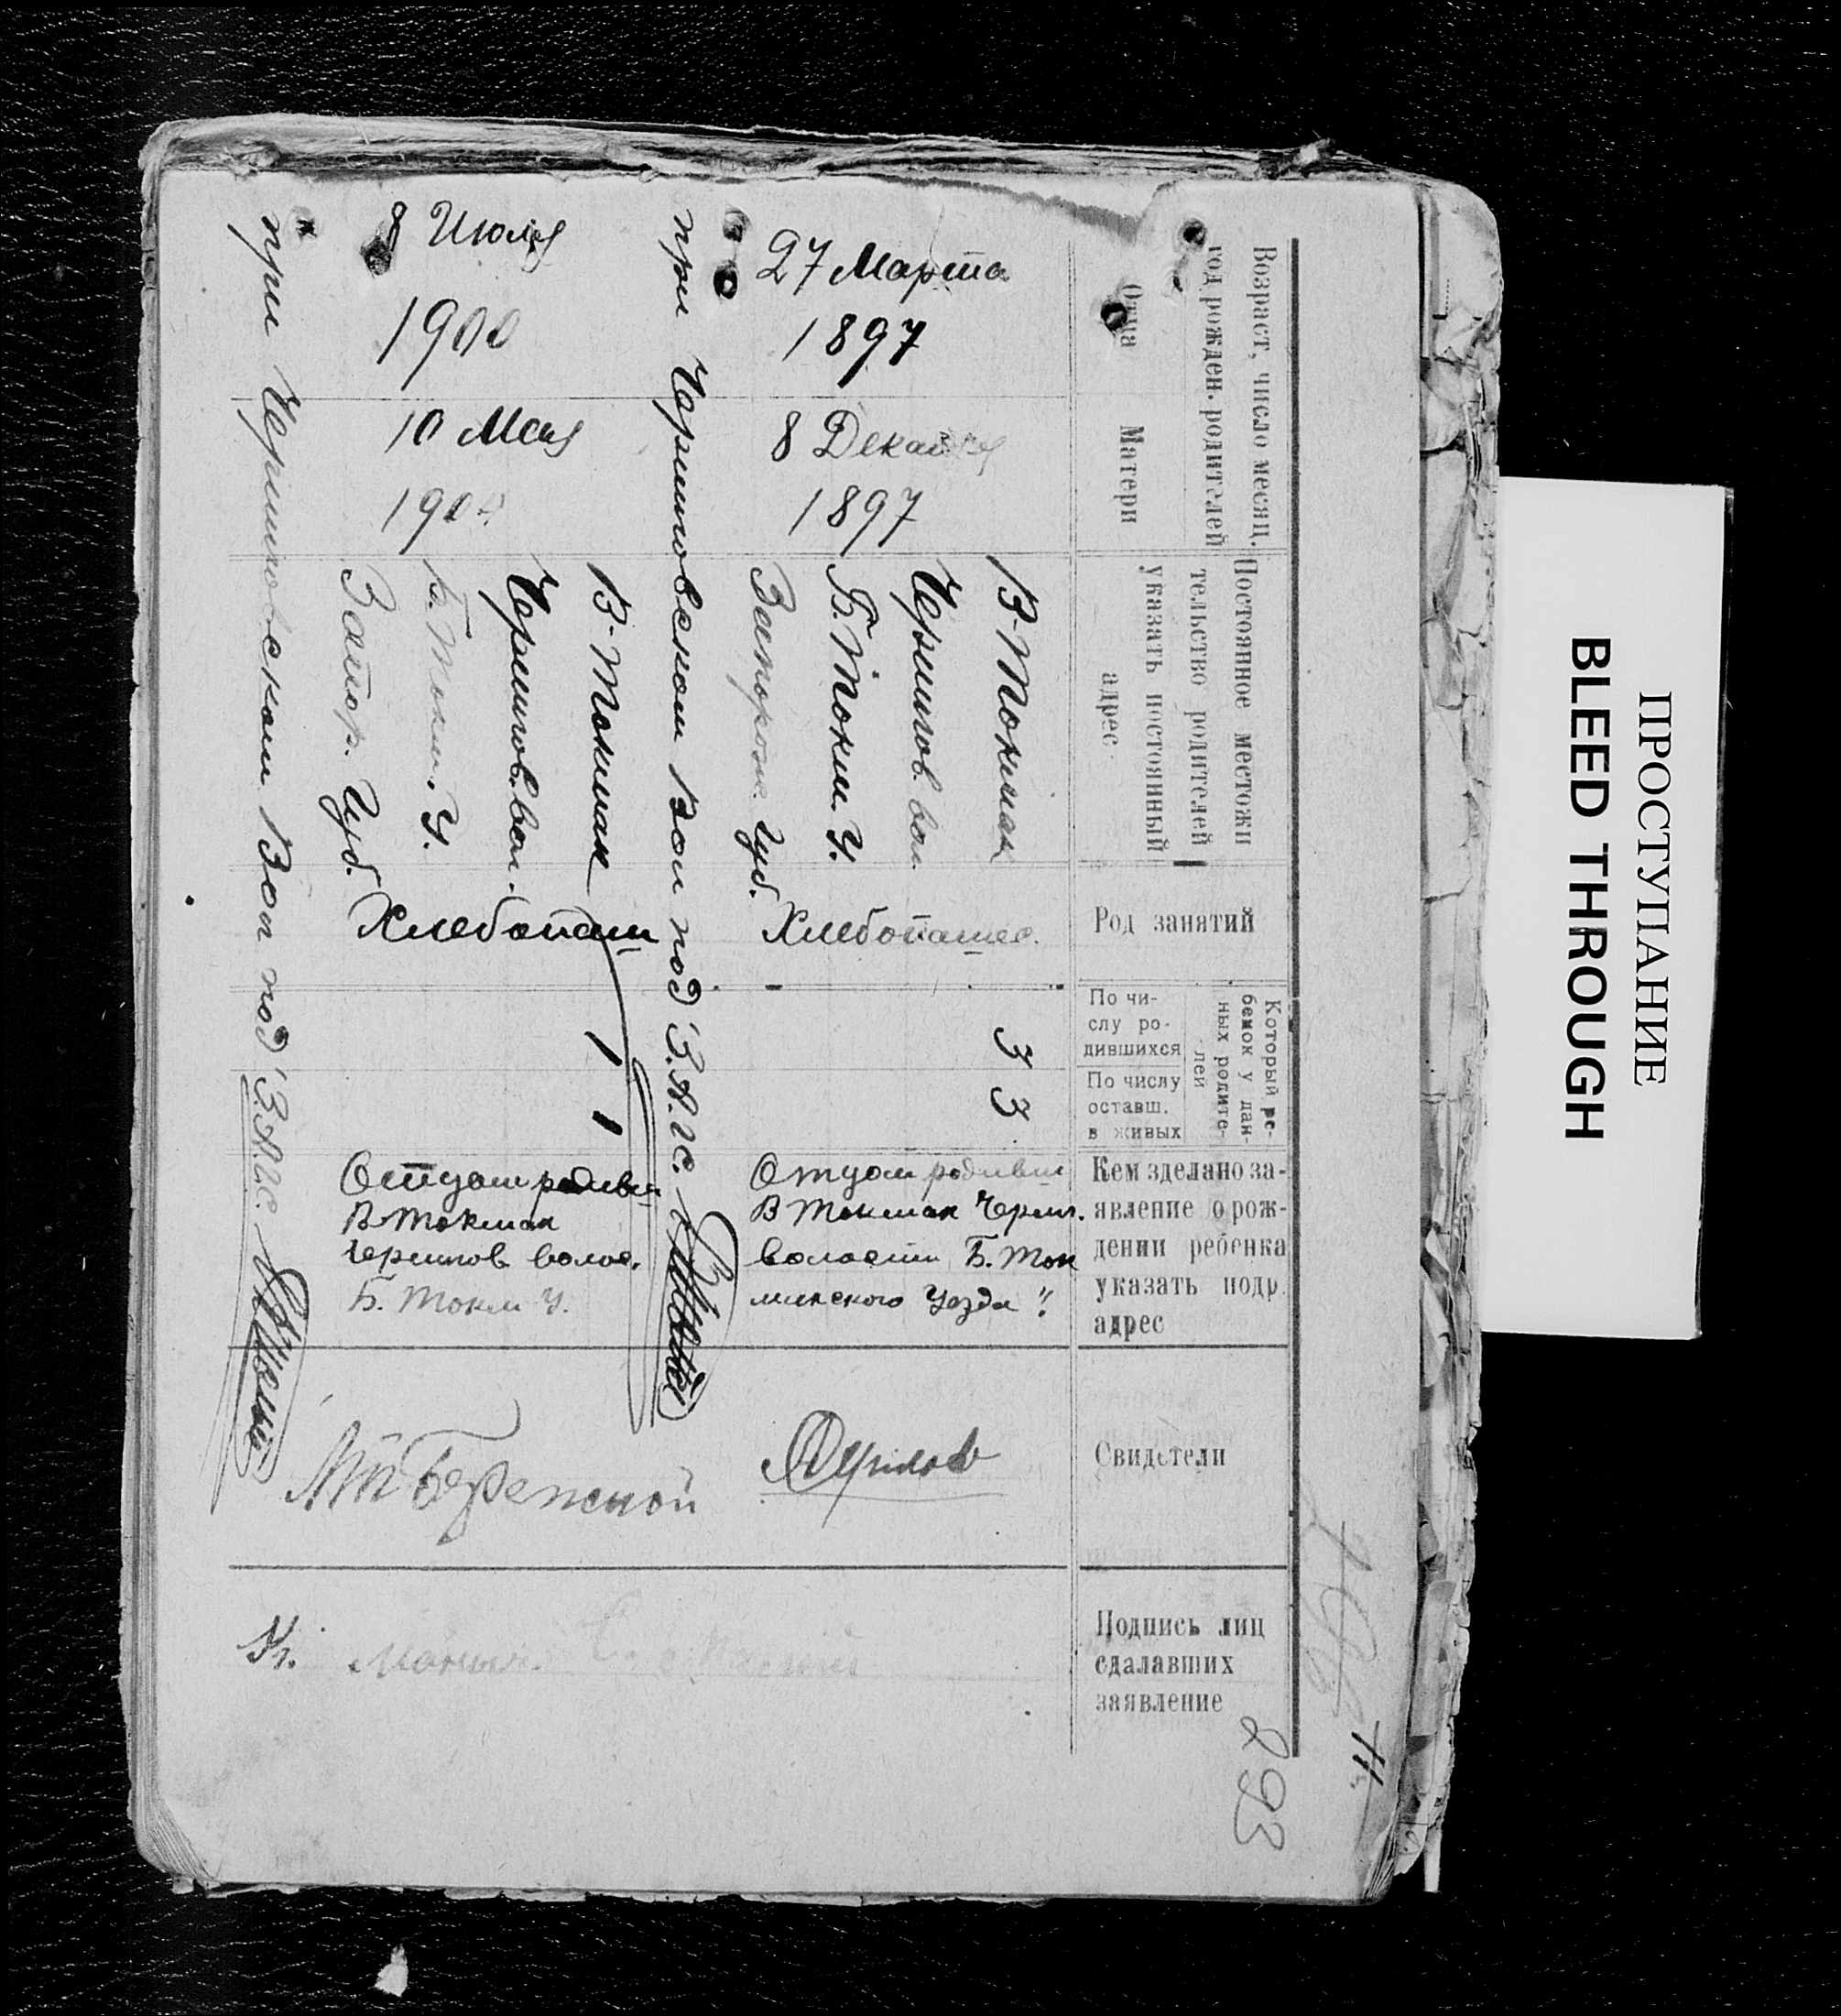 Возраст, число месяц.
год рожден. родителей
Отца
Матери
Постоянное местожи
тельство родителей
указать постоянный
адрес
Род занятий
Который ре-
бенок у дан-
ных родите-
лей
По чи-
слу ро-
дившихся
По числу
оставш.
в живых
Кем зделано за-
явление о рож-
дении ребенка
указать подр.
адрес
Свидетели
Подпись лиц
сдалавших
заявление
293
27 Марта
1897
8 Декабря
1897
В-Токмак
Чернигов. вол.
Б. Токм. У.
Запорож. Губ.
Хлебопашес.
3
3
Отцом
В Токмак Черниг.
волости Б. Ток
макского Уезда
при Черниговском Вол под З.А.Г.С.
8 Июля
1900
10 Мая
В-Токмак
Чернигов. вол.
Б. Токм. У.
Запор. Губ.
Хлебопаш
1
1
Отцом
В Токмак
Чернигов волос.
Б. Токм У.
при Черниговском Вол под З.А.Г.С.
ПРОСТУПАНИЕ
BLEED THROUGH